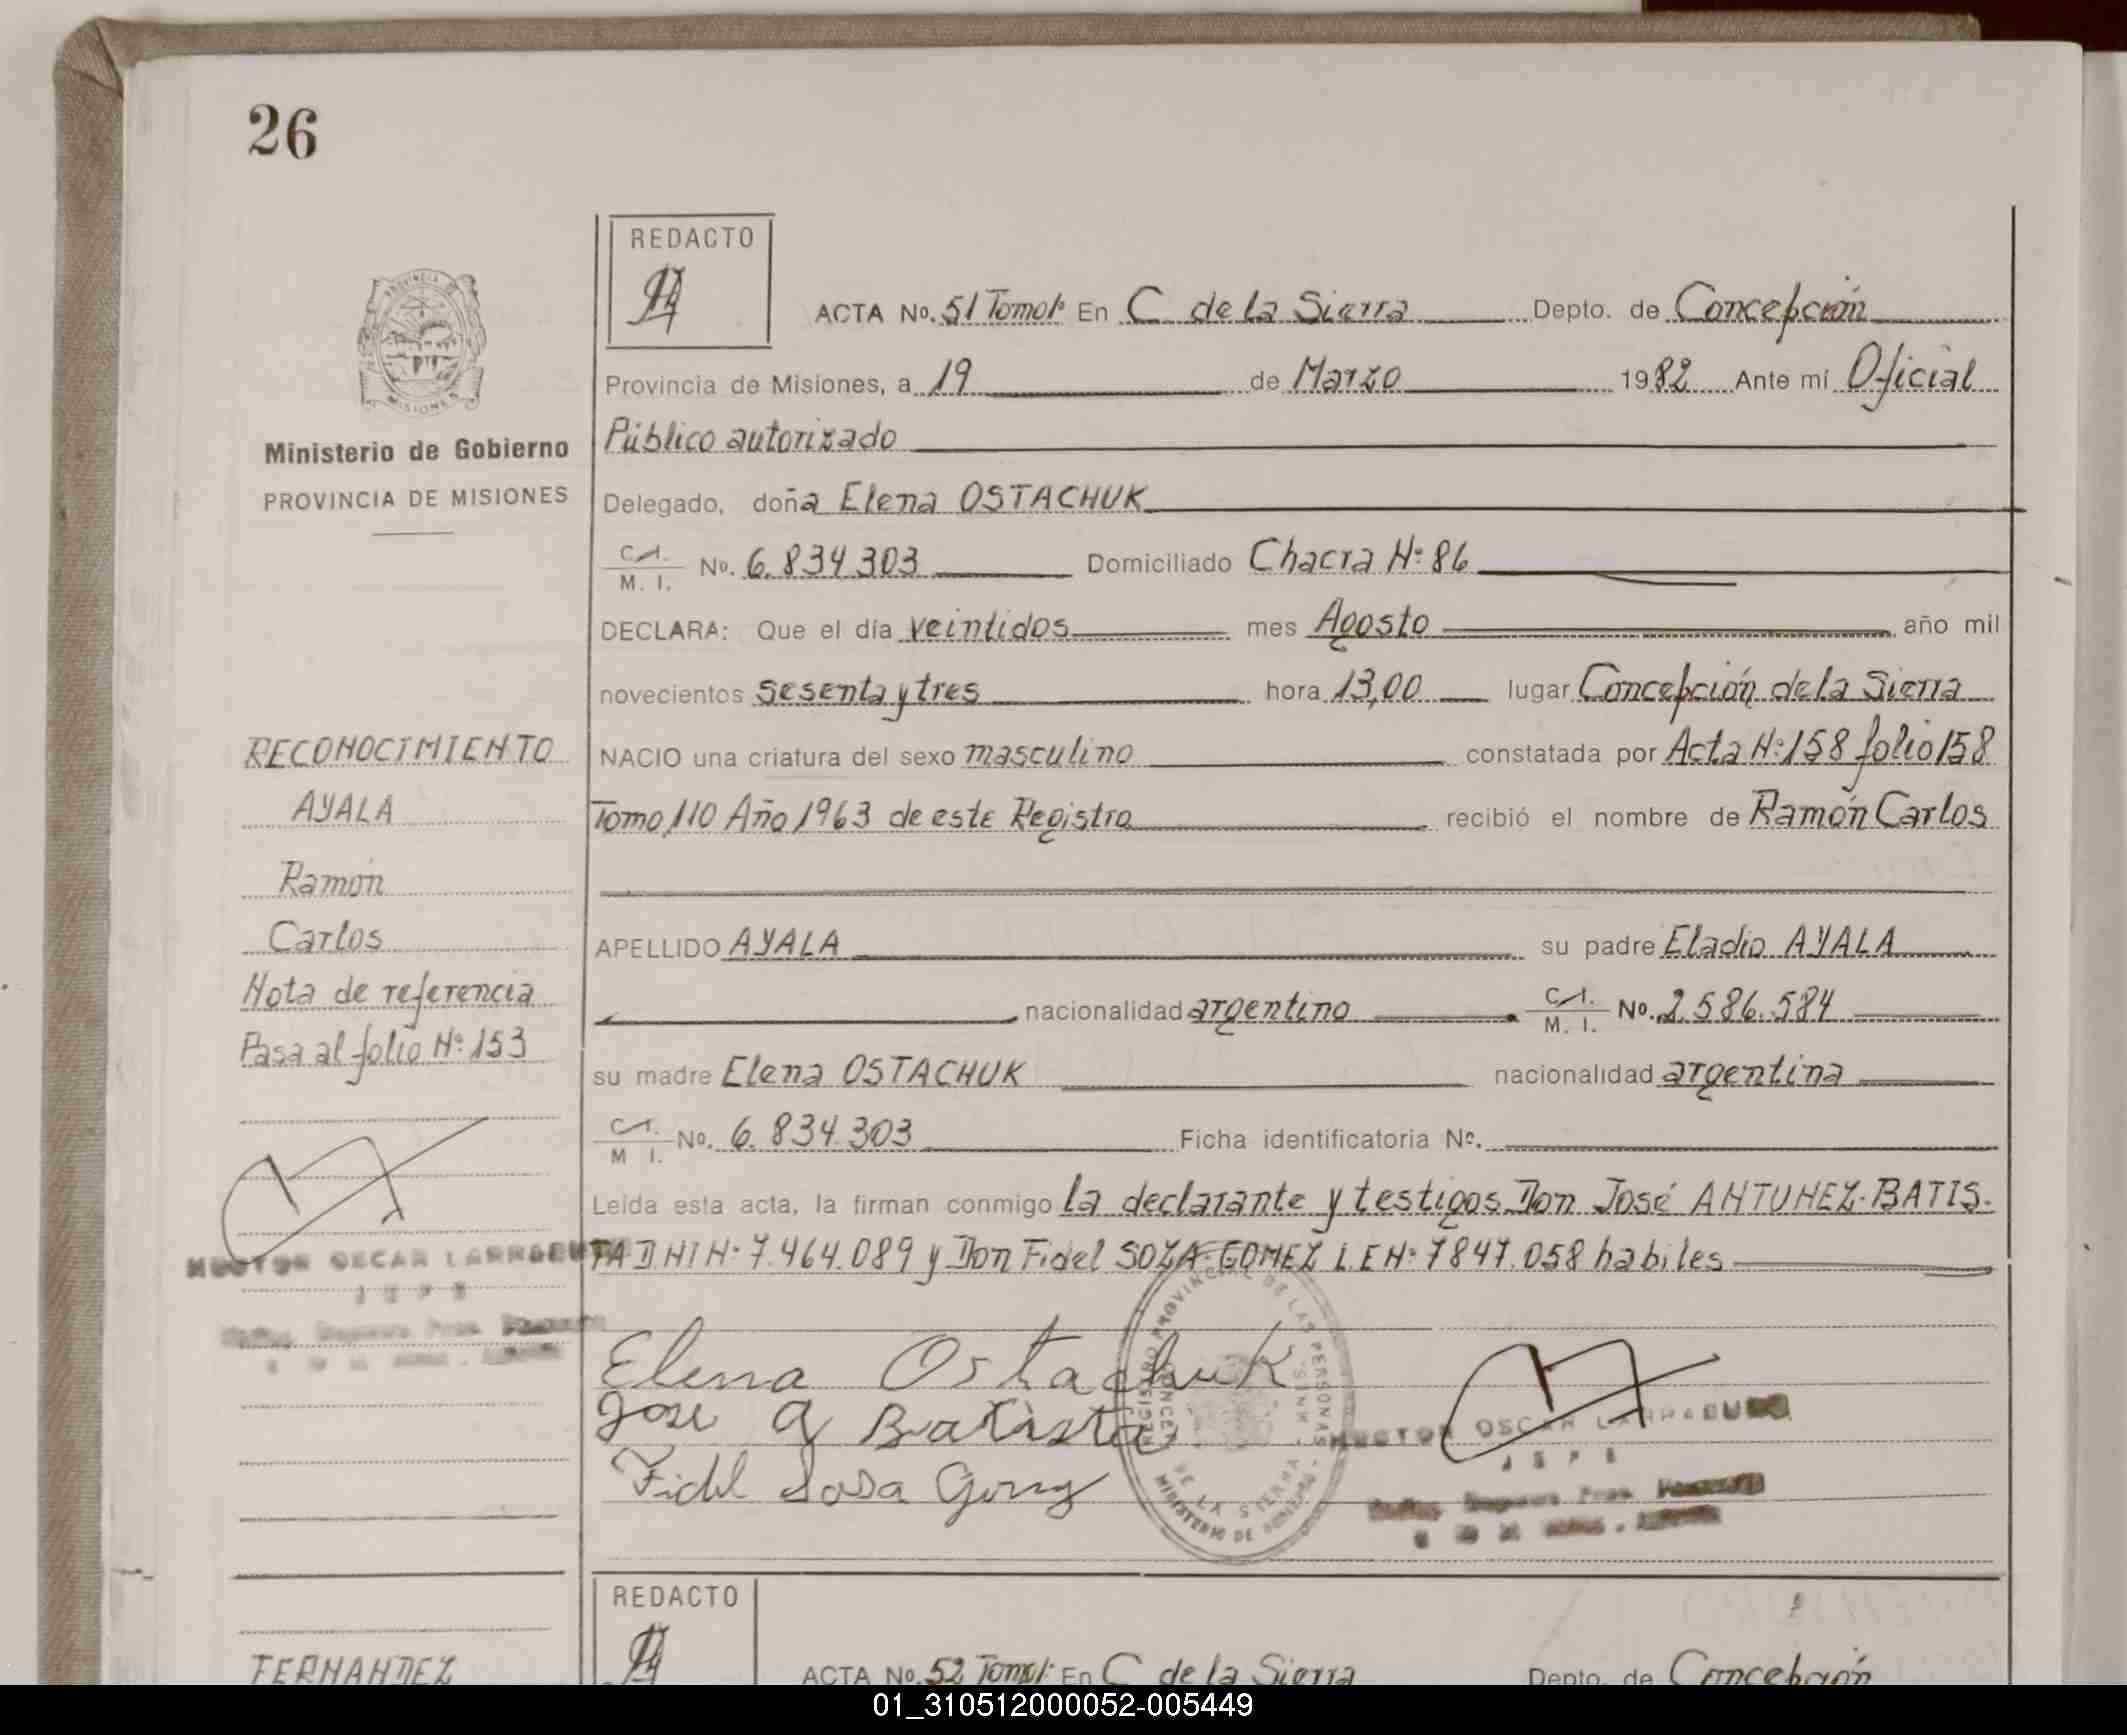 26
REDACTO
ACTA No. 51 Tomo 1º En C. de la Sierra Depto. de Concepción
Provincia de Misiones, a 19 de Marzo 1982 Ante mí Oficial
Público autorizado
Ministerio de Gobierno
PROVINCIA DE MISIONES
Delegado, doña Elena OSTACHUK
C.I.
M. I. No. 6.834.303 Domiciliado Chacra Nº 86
DECLARA: Que el día veintidos mes Agosto año mil
novecientos sesenta y tres hora 13,00 lugar Concepción de la Sierra
RECONOCIMIENTO
AYALA
Ramón
Carlos
Nota de referencia
Pasa al folio Nº 153
NACIO una criatura del sexo masculino constatada por Acta Nº 158 folio 158
Tomo 110 Año 1963 de este Registro recibió el nombre de Ramón Carlos
APELLIDO AYALA su padre Eladio AYALA
nacionalidad argentino C.I.
M. I. No. 2.586.584
su madre Elena OSTACHUK nacionalidad argentina
C.I.
M I. No. 6.834.303 Ficha identificatoria Nº.
Leída esta acta, la firman conmigo la declarante y testigos Don José ANTUNEZ BATIS-
TA DNI Nº 7.464.089 y Don Fidel SOZA GOMEZ L E Nº 7847.058 habiles
HECTOR OSCAR LARRABURU
JEFE
Elena Ostachuk
José A Batista
Fidel Sosa Gomez
REGISTRO PROVINCIAL DE LAS PERSONAS
DE LA SIERRA - MNES.
MINISTERIO DE GOBIERNO
HECTOR OSCAR LARRABURU
JEFE
REDACTO
FERNANDEZ
ACTA No. 52 Tomo 1º En C. de la Sierra Depto. de Concepción
01_310512000052-005449